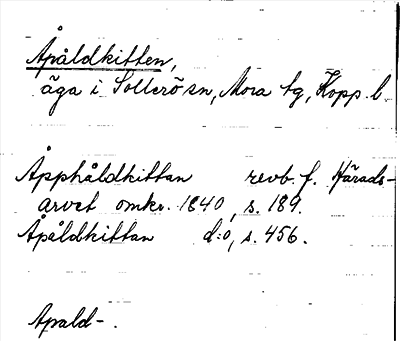 Åpåldkitten,
äga i Sollerö sn, Mora tg, Kopp. l.
Åpphåldkittan revb. f. Härads-
arvet omkr. 1840, s. 189.
Åpåldkittan d:o, s. 456.
Apald-.